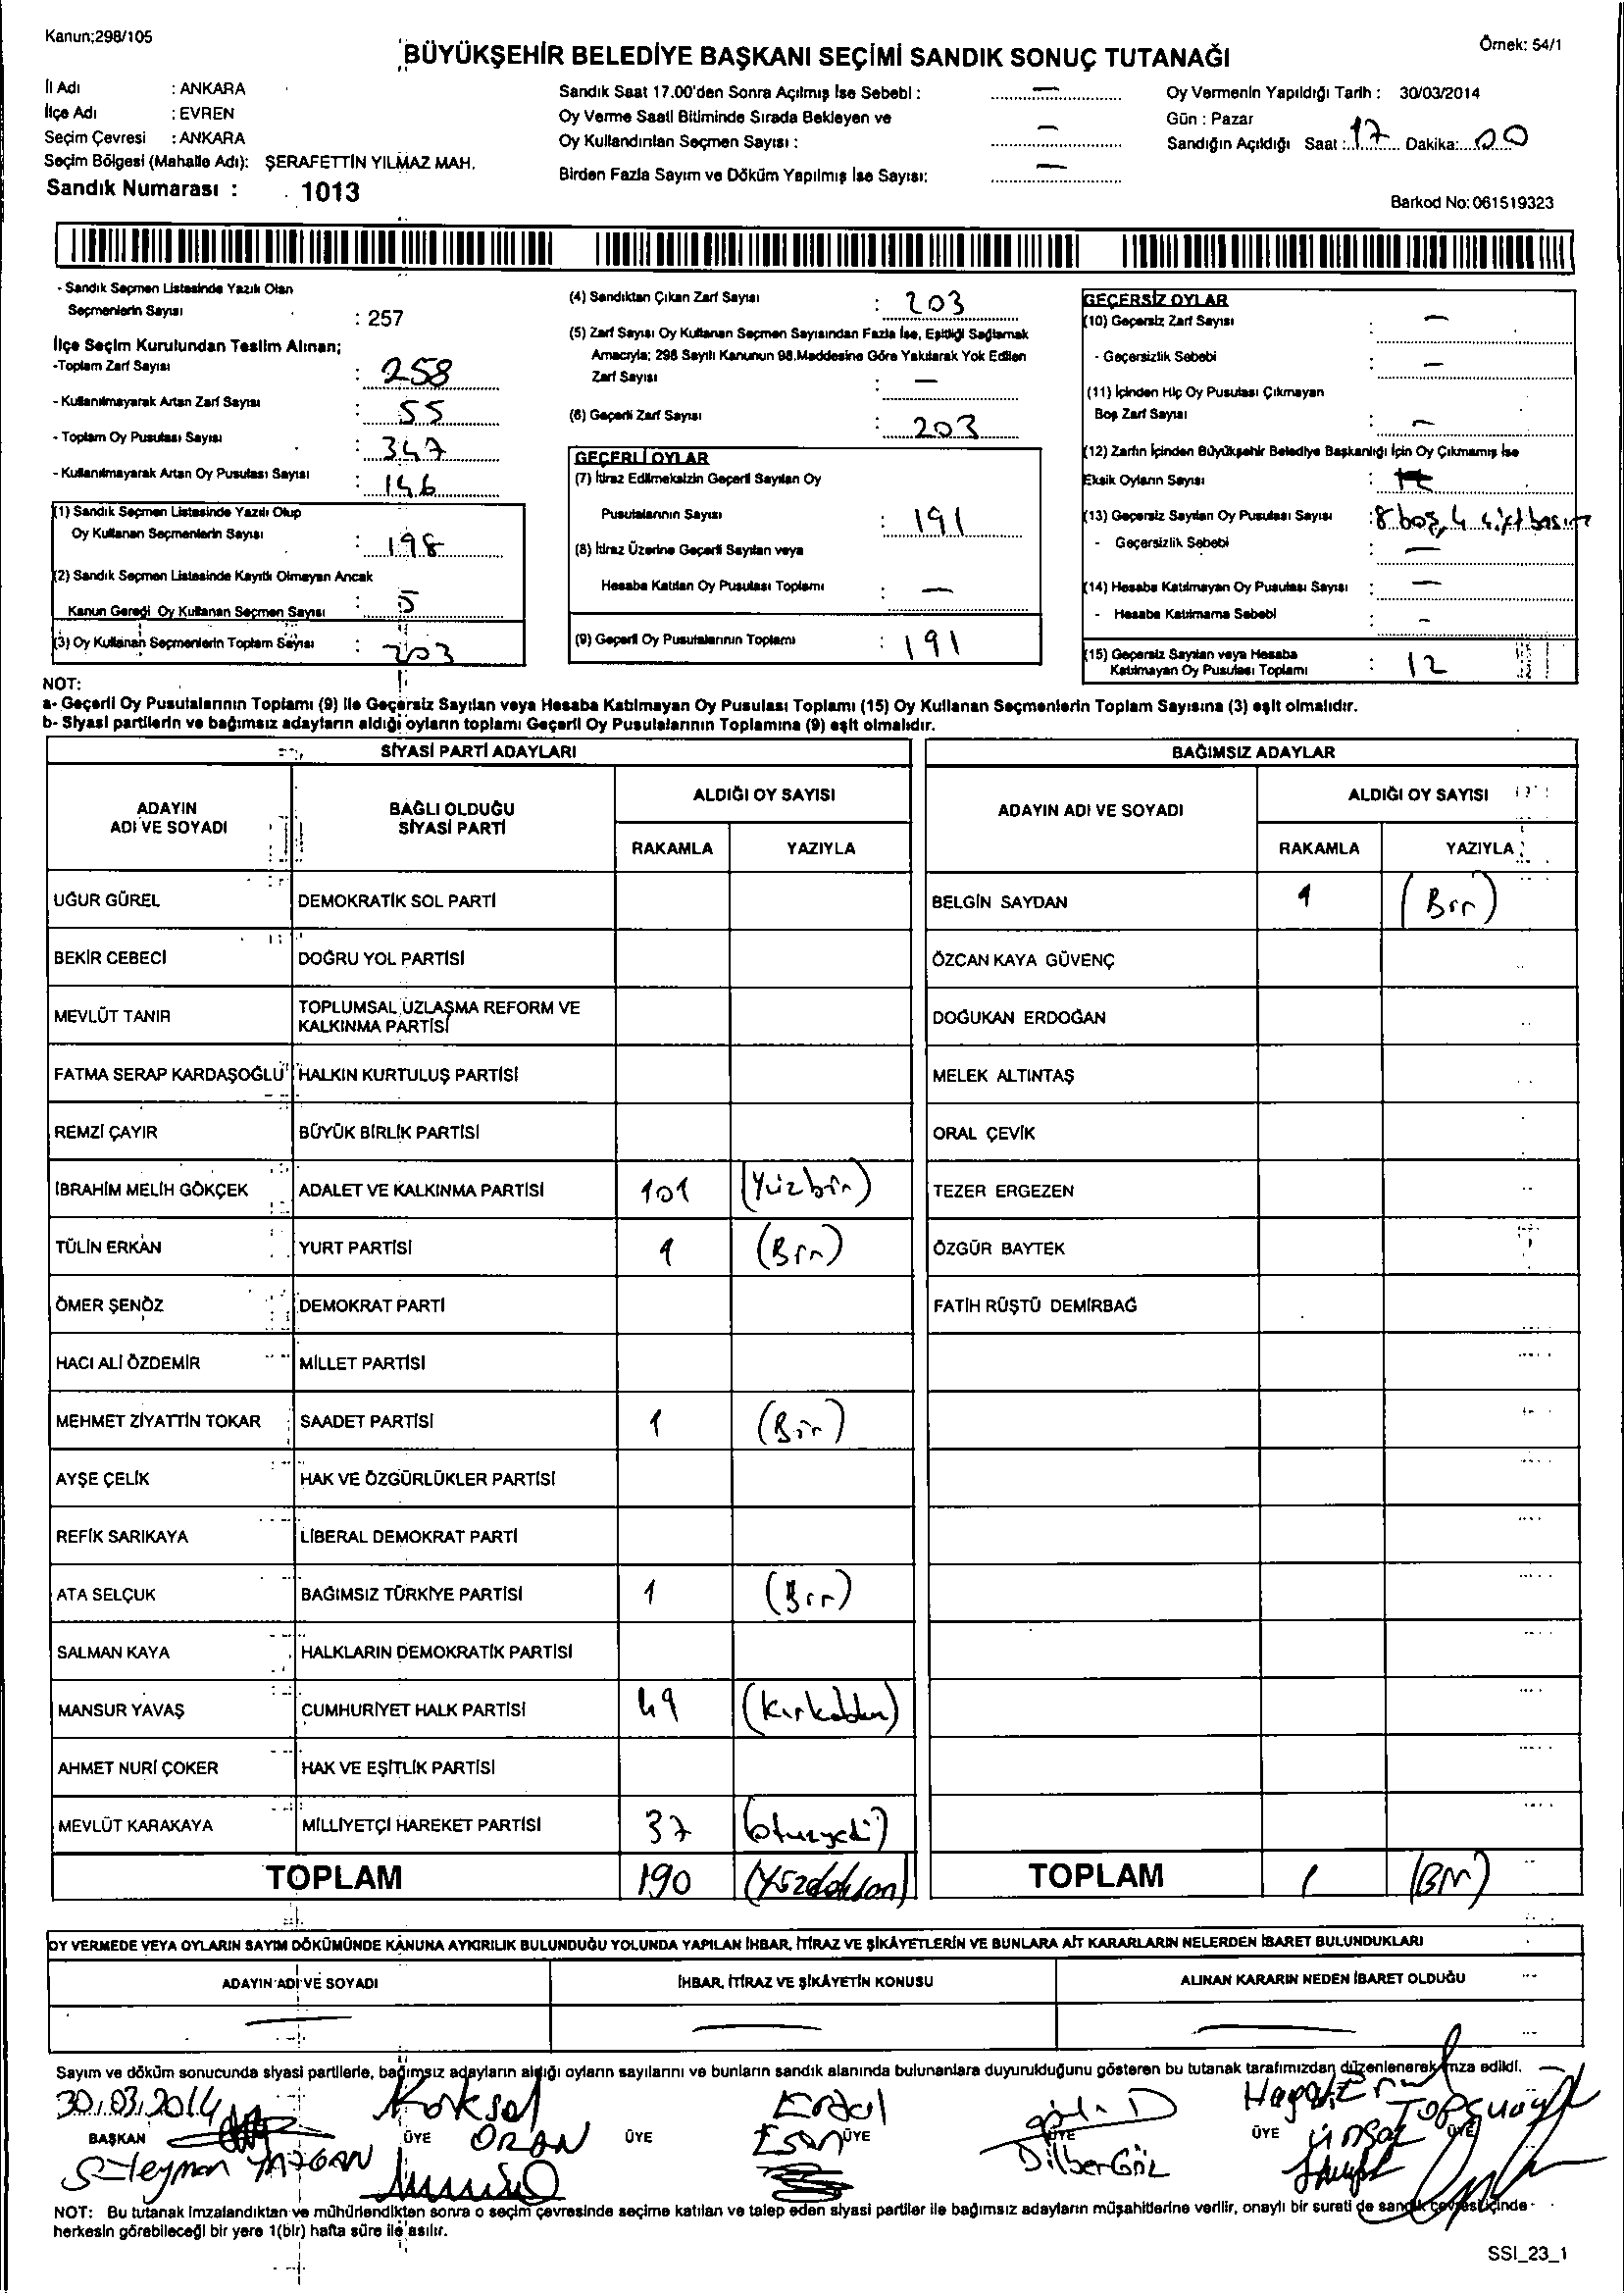 Kanun;298/105
Örnek: 54/1
BÜYÜKŞEHİR BELEDİYE BAŞKANI SEÇİMİ SANDIK SONUÇ TUTANAĞI
İl Adı : ANKARA
İlçe Adı : EVREN
Seçim Çevresi : ANKARA
Seçim Bölgesi (Mahalle Adı): ŞERAFETTİN YILMAZ MAH.
Sandık Numarası : 1013
Sandık Saat 17.00'den Sonra Açılmış İse Sebebi : —
Oy Verme Saati Bitiminde Sırada Bekleyen ve
Oy Kullandırılan Seçmen Sayısı : —
Birden Fazla Sayım ve Döküm Yapılmış İse Sayısı: —
Oy Vermenin Yapıldığı Tarih : 30/03/2014
Gün : Pazar
Sandığın Açıldığı Saat : 17 Dakika: 00
Barkod No: 061519323
- Sandık Seçmen Listesinde Yazılı Olan
Seçmenlerin Sayısı : 257
İlçe Seçim Kurulundan Teslim Alınan;
-Toplam Zarf Sayısı : 258
- Kullanılmayarak Artan Zarf Sayısı : 55
- Toplam Oy Pusulası Sayısı : 347
- Kullanılmayarak Artan Oy Pusulası Sayısı : 146
(1) Sandık Seçmen Listesinde Yazılı Olup
Oy Kullanan Seçmenlerin Sayısı : 198
(2) Sandık Seçmen Listesinde Kayıtlı Olmayan Ancak
Kanun Gereği Oy Kullanan Seçmen Sayısı : 5
(3) Oy Kullanan Seçmenlerin Toplam Sayısı : 203
(4) Sandıktan Çıkan Zarf Sayısı : 203
(5) Zarf Sayısı Oy Kullanan Seçmen Sayısından Fazla İse, Eşitliği Sağlamak
Amacıyla; 298 Sayılı Kanunun 98.Maddesine Göre Yakılarak Yok Edilen
Zarf Sayısı : —
(6) Geçerli Zarf Sayısı : 203
GEÇERLİ OYLAR
(7) İtiraz Edilmeksizin Geçerli Sayılan Oy
Pusulalarının Sayısı : 191
(8) İtiraz Üzerine Geçerli Sayılan veya
Hesaba Katılan Oy Pusulası Toplamı : —
(9) Geçerli Oy Pusulalarının Toplamı : 191
GEÇERSİZ OYLAR
(10) Geçersiz Zarf Sayısı : —
- Geçersizlik Sebebi : —
(11) İçinden Hiç Oy Pusulası Çıkmayan
Boş Zarf Sayısı : —
(12) Zarfın İçinden Büyükşehir Belediye Başkanlığı İçin Oy Çıkmamış İse
Eksik Oyların Sayısı :
(13) Geçersiz Sayılan Oy Pusulası Sayısı : 8 boş, 4 çift basım
- Geçersizlik Sebebi : —
(14) Hesaba Katılmayan Oy Pusulası Sayısı : —
- Hesaba Katılmama Sebebi : -
(15) Geçersiz Sayılan veya Hesaba
Katılmayan Oy Pusulası Toplamı : 12
NOT:
a- Geçerli Oy Pusulalarının Toplamı (9) ile Geçersiz Sayılan veya Hesaba Katılmayan Oy Pusulası Toplamı (15) Oy Kullanan Seçmenlerin Toplam Sayısına (3) eşit olmalıdır.
b- Siyasi partilerin ve bağımsız adayların aldığı oyların toplamı Geçerli Oy Pusulalarının Toplamına (9) eşit olmalıdır.
SİYASİ PARTİ ADAYLARI
ADAYIN ADI VE SOYADI BAĞLI OLDUĞU SİYASİ PARTİ ALDIĞI OY SAYISI
RAKAMLA YAZIYLA
UĞUR GÜREL DEMOKRATİK SOL PARTİ
BEKİR CEBECİ DOĞRU YOL PARTİSİ
MEVLÜT TANIR TOPLUMSAL UZLAŞMA REFORM VE KALKINMA PARTİSİ
FATMA SERAP KARDAŞOĞLU HALKIN KURTULUŞ PARTİSİ
REMZİ ÇAYIR BÜYÜK BİRLİK PARTİSİ
İBRAHİM MELİH GÖKÇEK ADALET VE KALKINMA PARTİSİ 101 (Yüzbir)
TÜLİN ERKAN YURT PARTİSİ 1 (Bir)
ÖMER ŞENÖZ DEMOKRAT PARTİ
HACI ALİ ÖZDEMİR MİLLET PARTİSİ
MEHMET ZİYATTİN TOKAR SAADET PARTİSİ 1 (Bir)
AYŞE ÇELİK HAK VE ÖZGÜRLÜKLER PARTİSİ
REFİK SARIKAYA LİBERAL DEMOKRAT PARTİ
ATA SELÇUK BAĞIMSIZ TÜRKİYE PARTİSİ 1 (Bir)
SALMAN KAYA HALKLARIN DEMOKRATİK PARTİSİ
MANSUR YAVAŞ CUMHURİYET HALK PARTİSİ 49 (Kırkdokuz)
AHMET NURİ ÇOKER HAK VE EŞİTLİK PARTİSİ
MEVLÜT KARAKAYA MİLLİYETÇİ HAREKET PARTİSİ 37 (otuzyedi)
TOPLAM 190 (Yüzdoksan)
BAĞIMSIZ ADAYLAR
ADAYIN ADI VE SOYADI ALDIĞI OY SAYISI
RAKAMLA YAZIYLA
BELGİN SAYDAN 1 (Bir)
ÖZCAN KAYA GÜVENÇ
DOĞUKAN ERDOĞAN
MELEK ALTINTAŞ
ORAL ÇEVİK
TEZER ERGEZEN
ÖZGÜR BAYTEK
FATİH RÜŞTÜ DEMİRBAĞ
TOPLAM 1 (Bir)
OY VERMEDE VEYA OYLARIN SAYIM DÖKÜMÜNDE KANUNA AYKIRILIK BULUNDUĞU YOLUNDA YAPILAN İHBAR, İTİRAZ VE ŞİKÂYETLERİN VE BUNLARA AİT KARARLARIN NELERDEN İBARET BULUNDUKLARI
ADAYIN ADI VE SOYADI İHBAR, İTİRAZ VE ŞİKÂYETİN KONUSU ALINAN KARARIN NEDEN İBARET OLDUĞU
— — —
Sayım ve döküm sonucunda siyasi partilerle, bağımsız adayların aldığı oyların sayılarını ve bunların sandık alanında bulunanlara duyurulduğunu gösteren bu tutanak tarafımızdan düzenlenerek imza edildi.
30.03.2014 Köksal Erdal
BAŞKAN ÜYE ORAN ÜYE Esen ÜYE ÜYE ÜYE Ünsal TOPÇUOĞLU ÜYE
Süleyman YAZGAN Dilber GÖL
NOT: Bu tutanak imzalandıktan ve mühürlendikten sonra o seçim çevresinde seçime katılan ve talep eden siyasi partiler ile bağımsız adayların müşahitlerine verilir, onaylı bir sureti de sandık çevresi içinde
herkesin görebileceği bir yere 1(bir) hafta süre ile asılır.
SSI_23_1